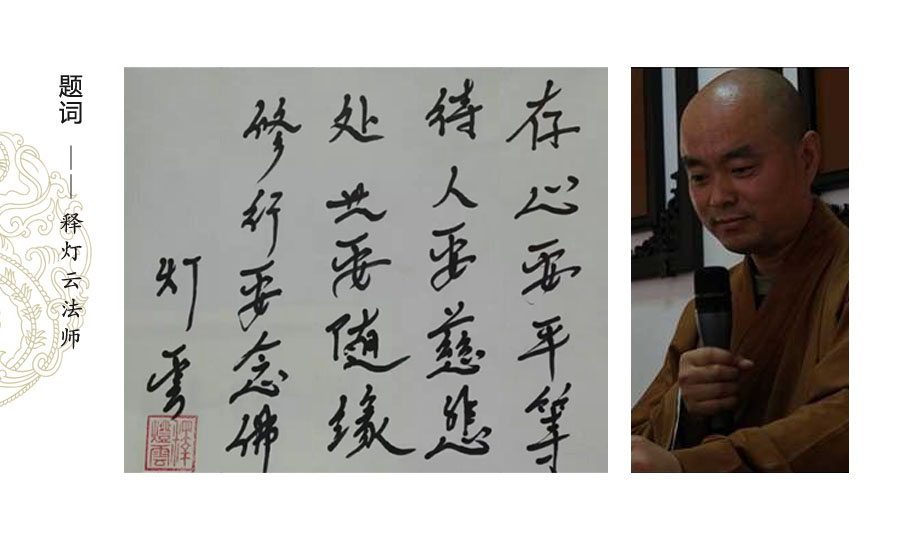 题词
——释灯云法师
存心要平等
待人要慈悲
处世要随缘
修行要念佛
灯雲
释燈雲